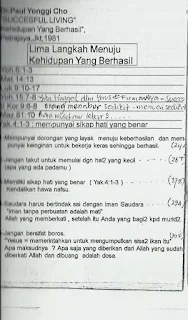 Dr.Paul Yonggi Cho
"SUCCESFUL LIVING"
Kehidupan Yang Berhasil",
Petrajaya,Jkt,1981
Lima Langkah Menuju
Kehidupan Yang Berhasil
Yoh 6:1-3
Mat 14:13
Luk 9:10-17
Yoh 15:7-8
2 Kor 9:6-8 menabur sedikit -
Maz 81:10
Yak.4:1-3 mempunyai sikap hati yang benar
Mempunyai dorongan yang layak menuju keberhasilan dan mem
punyai keinginan untuk bekerja keras sehingga berhasil.
Jangan takut untuk mulai dgn hal2 yang kecil -
(apa yang ada padamu )
Memiliki sikap hati yang benar ( Yak.4:1-3)
Kendalikan hawa nafsu.
Saudara harus bertindak sesi dengan Iman Saudara
"Iman tanpa perbuatan adalah mati"
Allah yang memberkati , setelah itu Anda yang bagi2 kpd murid2.
Jangan bersifat boros.
"Yesus = memerintahkan untuk mengumpulkan sisa2 ikan itu"
Apa maksudnya ? Apa saja yang diberikan dari Allah yang sudah
diberkati Allah dan dibuang adalah dosa.